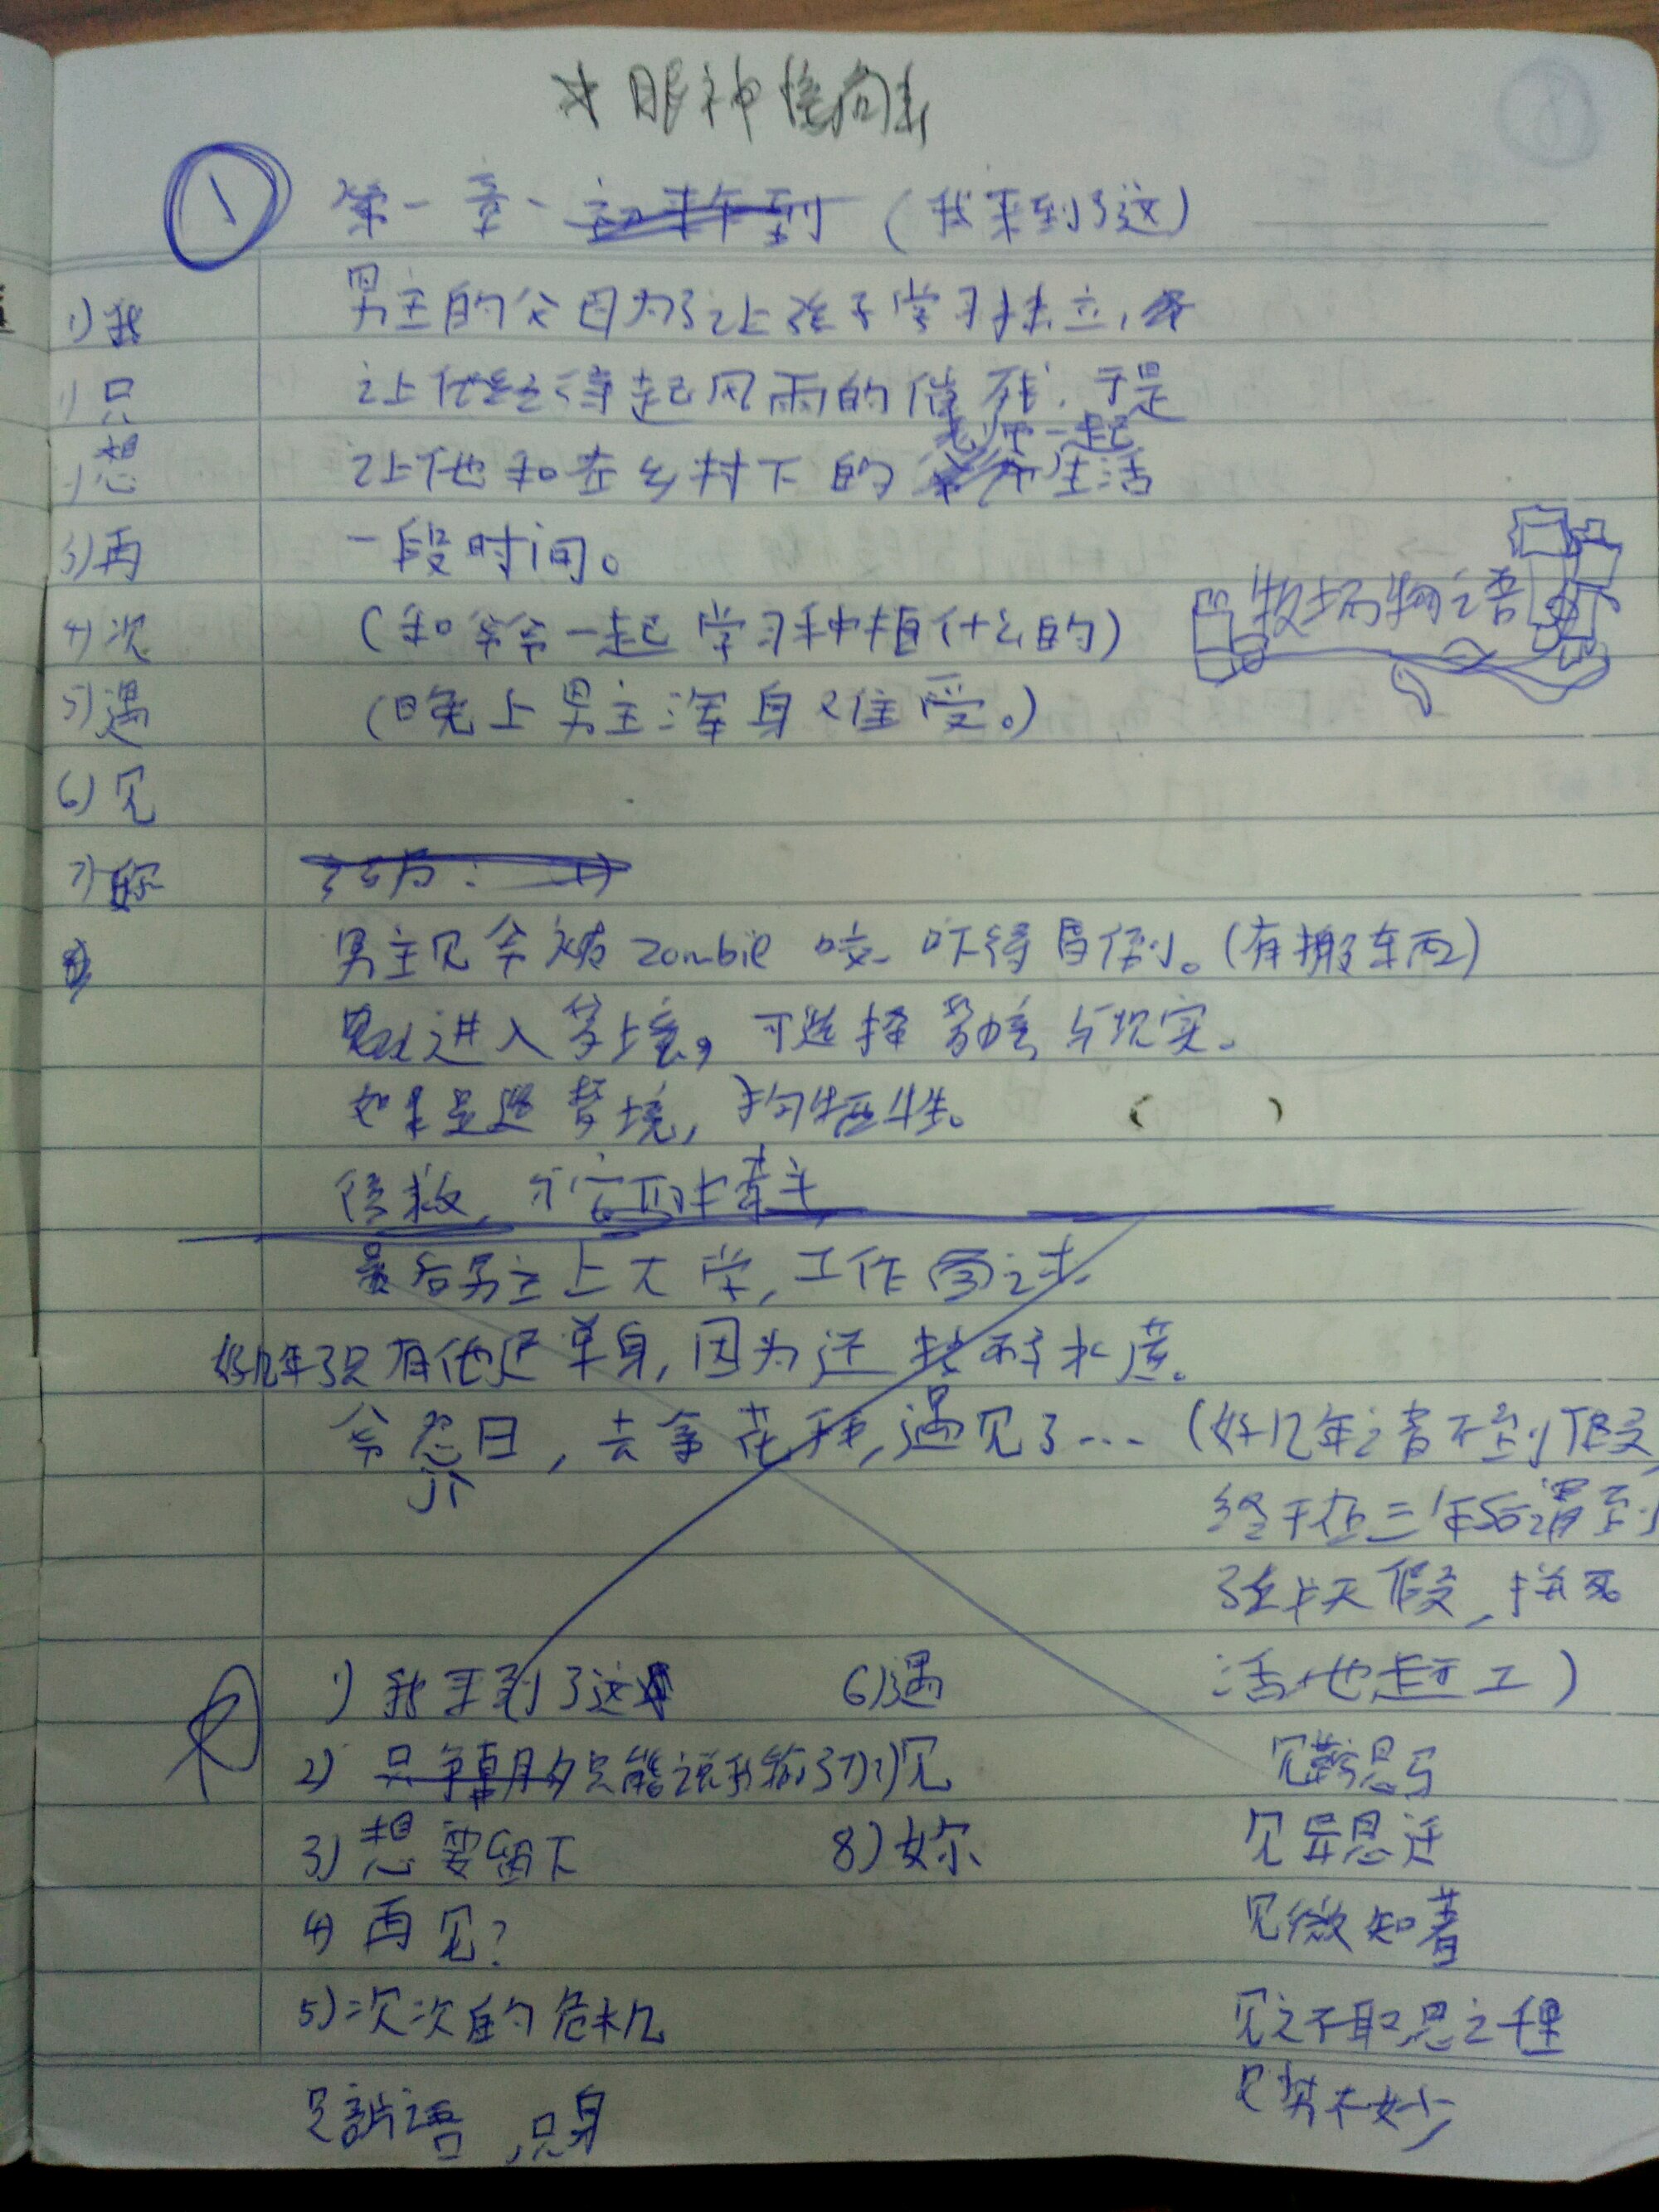 眼神
1 第一章 (我来到了这)
1) 我
男主的父母为了让孩子学习独立,
1) 只
让他经得起风雨的催残,于是
老师一起
1) 想
让他和在乡村下的 生活
3) 再
一段时间。
牧场物语
4) 次
(和爷爷一起学习种植什么的)
5) 遇
(晚上男主浑身难受。)
6) 见
7) 妳
男主见爷被 zombie 咬 吓得昏倒。(有搬东西)
进入梦境, 可选择 梦境与现实。
如果是选梦境, 牺牲。
( )
最后男主上大学, 工作
好几年了只有他还单身, 因为还
爷忌日, 去拿花种, 遇见了... (好几年之者不到假
终于在三年后 到
天假, 拼死
活地赶工)
1) 我来到了这
6) 遇
2) 只争朝夕只能说我输了
7) 见
见 思
3) 想要留下
8) 妳
见异思迁
4) 再见?
见微知著
5) 次次的危机
见之不取思之千里
只言片语, 只身
见势不妙